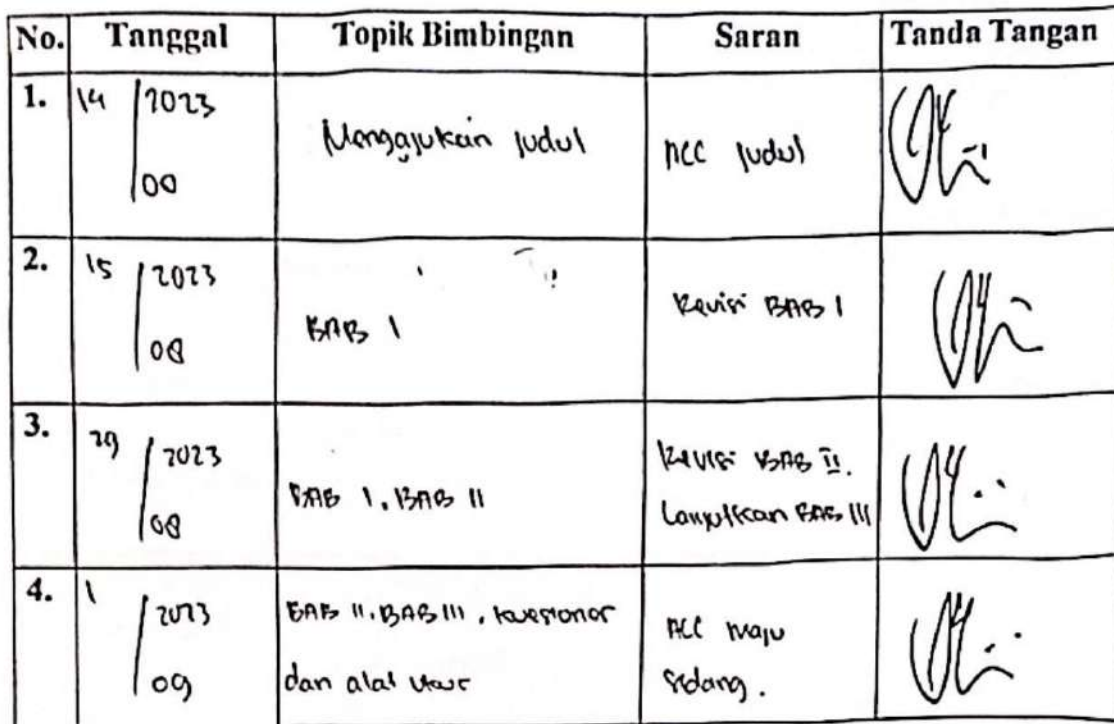 No. Tanggal Topik Bimbingan Saran Tanda Tangan
1. 14 / 2023 Mengajukan Judul ACC Judul
08
2. 15 / 2023 BAB I Revisi BAB I
08
3. 29 / 2023 BAB I, BAB II Revisi BAB II.
08 Lanjutkan BAB III
4. 1 / 2023 BAB II, BAB III, kuesioner ACC maju
09 dan alat ukur sidang.